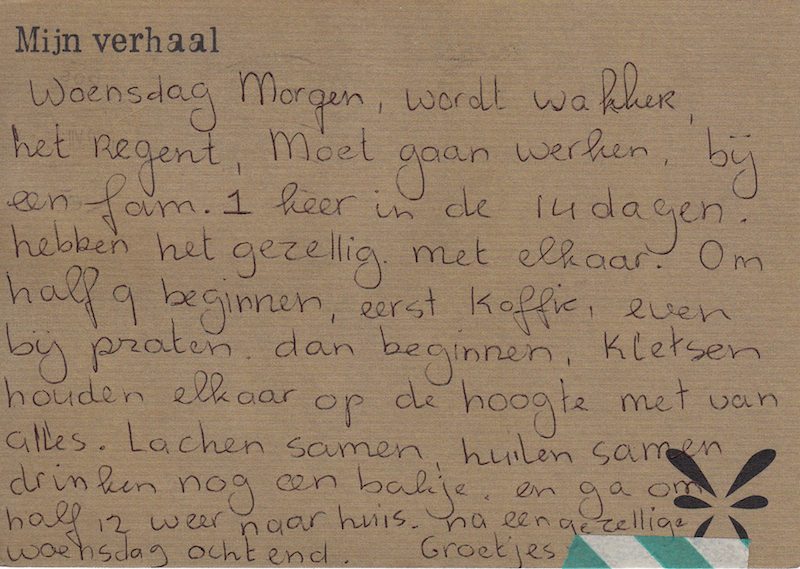 Mijn verhaal
Woensdag Morgen, wordt wakker,
het Regent, Moet gaan werken, bij
een fam. 1 keer in de 14 dagen.
hebben het gezellig. met elkaar. Om
half 9 beginnen, eerst koffie, even
bij praten. dan beginnen, kletsen
houden elkaar op de hoogte met van
alles. Lachen samen, huilen samen
drinken nog een bakje. en ga om
half 12 weer naar huis. na een gezellige
woensdag ochtend. Groetjes